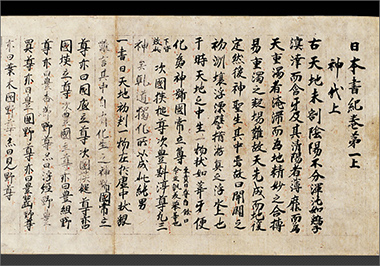 日本書紀巻第一上
神代上
古天地未剖陰陽不分渾沌如鶏子
溟涬而含牙及其清陽者薄靡而為
天重濁者淹滞而為地精妙之合搏
易重濁之凝場難故天先成而地後
定然後神聖生其中焉故曰開闢之
初洲壌浮漂譬猶游魚之浮水上也
于時天地之中生一物状如葦牙便
化為神号国常立尊
次国狭槌尊次豊斟渟尊凡三
神矣乾道独化所以成此純男
一書曰天地初判一物在於虚中状貌
難言其中自有化生之神号国常立
尊亦曰国底立尊次国狭槌尊亦曰
国狭立尊次豊国主尊亦曰豊組野
尊亦曰豊香節野尊亦曰浮経野豊
買尊亦曰豊国野尊亦曰
亦曰葉木国野尊亦曰見野尊